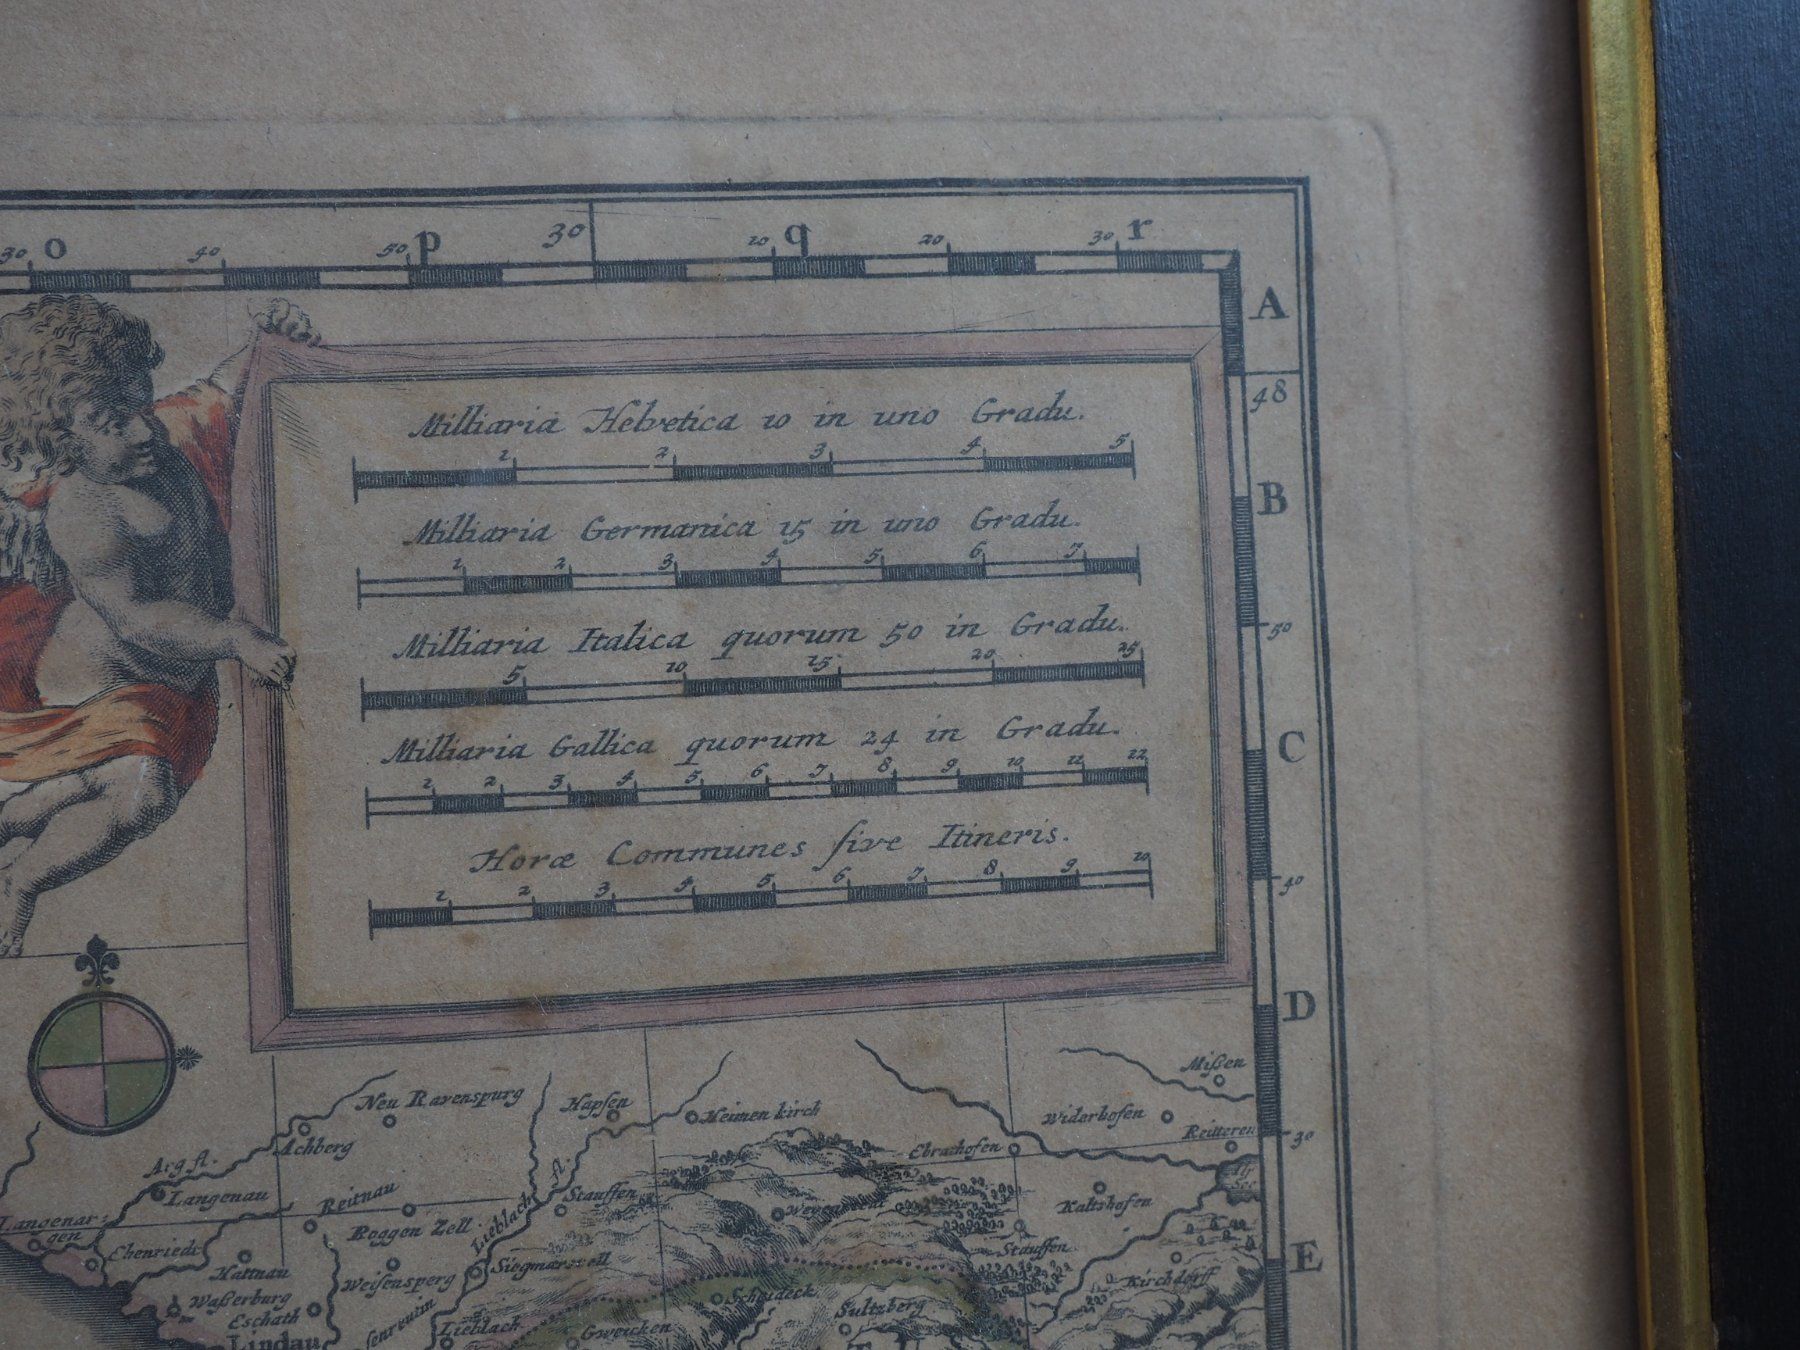 30 o 40 50 p 30 10 q 20 30 r
A
48
B
50
C
40
D
30
E
Milliaria Helvetica 10 in uno Gradu.
1 2 3 4 5
Milliaria Germanica 15 in uno Gradu.
1 2 3 4 5 6 7
Milliaria Italica quorum 50 in Gradu.
5 10 15 20 25
Milliaria Gallica quorum 24 in Gradu.
1 2 3 4 5 6 7 8 9 10 11 12
Horæ Communes ſive Itineris.
1 2 3 4 5 6 7 8 9 10
Mißen
Neu Ravenspurg
Hapſen
Heimen kirch
Widerhofen
Reitteren
Achberg
Ebrazhofen
Arg fl.
Langenau
Reitnau
Lieblach fl.
Stauffen
Kaltzhofen
Langenar:
gen
Roggen Zell
Stauffen
Hattnau
Weiſensperg
Kirchdorff
Waßerburg
Scheideck
Eschath
Sultzberg
Lieblach
Lindau